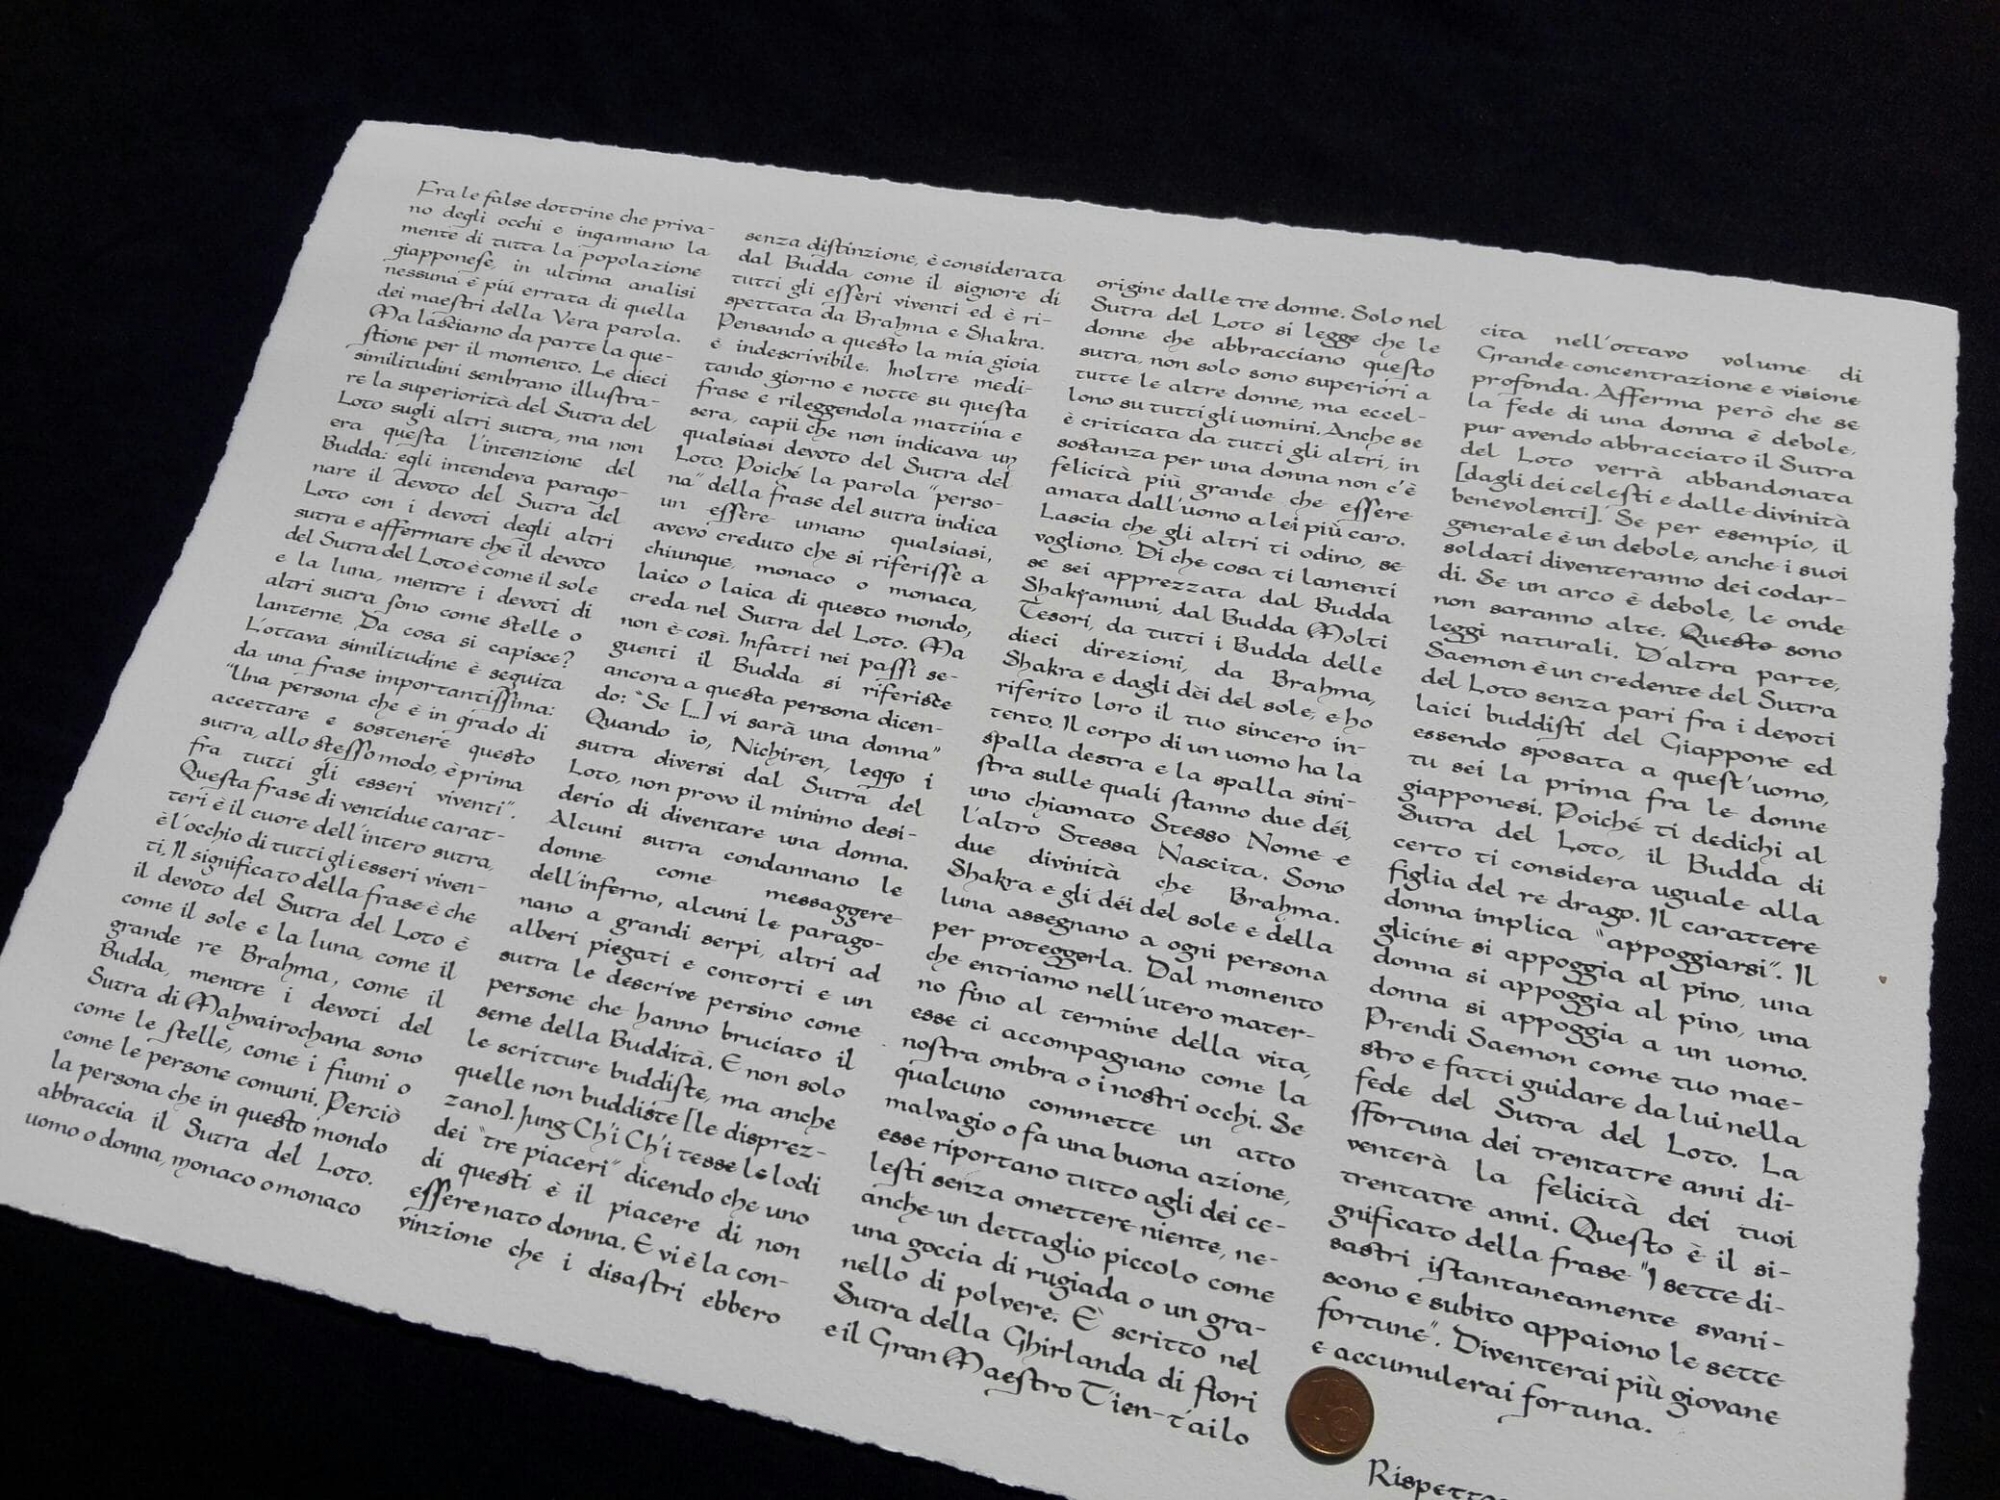 Fra le false dottrine che priva-
no degli occhi e ingannano la
mente di tutta la popolazione
giapponese, in ultima analisi
nessuna è più errata di quella
dei maestri della Vera parola.
Ma lasciamo da parte la que-
stione per il momento. Le dieci
similitudini sembrano illustra-
re la superiorità del Sutra del
Loto sugli altri sutra, ma non
era questa l'intenzione del
Budda: egli intendeva parago-
nare il devoto del Sutra del
Loto con i devoti degli altri
sutra e affermare che il devoto
del Sutra del Loto è come il sole
e la luna, mentre i devoti di
altri sutra sono come stelle o
lanterne. Da cosa si capisce?
L'ottava similitudine è seguita
da una frase importantissima:
"Una persona che è in grado di
accettare e sostenere questo
sutra, allo stesso modo, è prima
fra tutti gli esseri viventi".
Questa frase di ventidue carat-
teri è il cuore dell'intero sutra,
è l'occhio di tutti gli esseri viven-
ti. Il significato della frase è che
il devoto del Sutra del Loto è
come il sole e la luna, come il
grande re Brahma, come il
Budda, mentre i devoti del
Sutra di Mahvairochana sono
come le stelle, come i fiumi o
come le persone comuni. Perciò
la persona che in questo mondo
abbraccia il Sutra del Loto.
uomo o donna, monaco o monaco
senza distinzione, è considerata
dal Budda come il signore di
tutti gli esseri viventi ed è ri-
spettata da Brahma e Shakra.
Pensando a questo la mia gioia
è indescrivibile. Inoltre medi-
tando giorno e notte su questa
frase e rileggendola mattina e
sera, capii che non indicava un
qualsiasi devoto del Sutra del
Loto. Poiché la parola "perso-
na" della frase del sutra indica
un essere umano qualsiasi,
avevo creduto che si riferisse a
chiunque, monaco o monaca,
laico o laica di questo mondo,
creda nel Sutra del Loto. Ma
non è così. Infatti nei passi se-
guenti il Budda si riferisce
ancora a questa persona dicen-
do: "Se [...] vi sarà una donna"
Quando io, Nichiren, leggo i
sutra diversi dal Sutra del
Loto, non provo il minimo desi-
derio di diventare una donna.
Alcuni sutra condannano le
donne come messaggere
dell'inferno, alcuni le parago-
nano a grandi serpi, altri ad
alberi piegati e contorti e un
sutra le descrive persino come
persone che hanno bruciato il
seme della Buddità. E non solo
le scritture buddiste, ma anche
quelle non buddiste [le disprez-
zano]. Jung Ch'i Ch'i tesse le lodi
dei "tre piaceri" dicendo che uno
di questi è il piacere di non
essere nato donna. E vi è la con-
vinzione che i disastri ebbero
origine dalle tre donne. Solo nel
Sutra del Loto si legge che le
donne che abbracciano questo
sutra, non solo sono superiori a
tutte le altre donne, ma eccel-
lono su tutti gli uomini. Anche se
è criticata da tutti gli altri, in
sostanza per una donna non c'è
felicità più grande che essere
amata dall'uomo a lei più caro.
Lascia che gli altri ti odino, se
vogliono. Di che cosa ti lamenti
se sei apprezzata dal Budda
Shakyamuni, dal Budda Molti
Tesori, da tutti i Budda delle
dieci direzioni, da Brahma,
Shakra e dagli dèi del sole, e ho
riferito loro il tuo sincero in-
tento. Il corpo di un uomo ha la
spalla destra e la spalla sini-
stra sulle quali stanno due déi,
uno chiamato Stesso Nome e
l'altro Stessa Nascita. Sono
due divinità che Brahma.
Shakra e gli déi del sole e della
luna assegnano a ogni persona
per proteggerla. Dal momento
che entriamo nell'utero mater-
no fino al termine della vita,
esse ci accompagnano come la
nostra ombra o i nostri occhi. Se
qualcuno commette un atto
malvagio o fa una buona azione,
esse riportano tutto agli dei ce-
lesti senza omettere niente, ne-
anche un dettaglio piccolo come
una goccia di rugiada o un gra-
nello di polvere. È scritto nel
Sutra della Ghirlanda di fiori
e il Gran Maestro T'ien-t'ai lo
cita nell'ottavo volume di
Grande concentrazione e visione
profonda. Afferma però che se
la fede di una donna è debole,
pur avendo abbracciato il Sutra
del Loto verrà abbandonata
[dagli dei celesti e dalle divinità
benevolenti]. Se per esempio, il
generale è un debole, anche i suoi
soldati diventeranno dei codar-
di. Se un arco è debole, le onde
non saranno alte. Questo sono
leggi naturali. D'altra parte,
Saemon è un credente del Sutra
del Loto senza pari fra i devoti
laici buddisti del Giappone ed
essendo sposata a quest'uomo,
tu sei la prima fra le donne
giapponesi. Poiché ti dedichi al
Sutra del Loto, il Budda di
certo ti considera uguale alla
figlia del re drago. Il carattere
donna implica "appoggiarsi". Il
glicine si appoggia al pino, una
donna si appoggia al pino, una
donna si appoggia a un uomo.
Prendi Saemon come tuo mae-
stro e fatti guidare da lui nella
fede del Sutra del Loto. La
sfortuna dei trentatre anni di-
venterà la felicità dei tuoi
trentatre anni. Questo è il si-
gnificato della frase "I sette di-
sastri istantaneamente svani-
scono e subito appaiono le sette
fortune". Diventerai più giovane
e accumulerai fortuna.